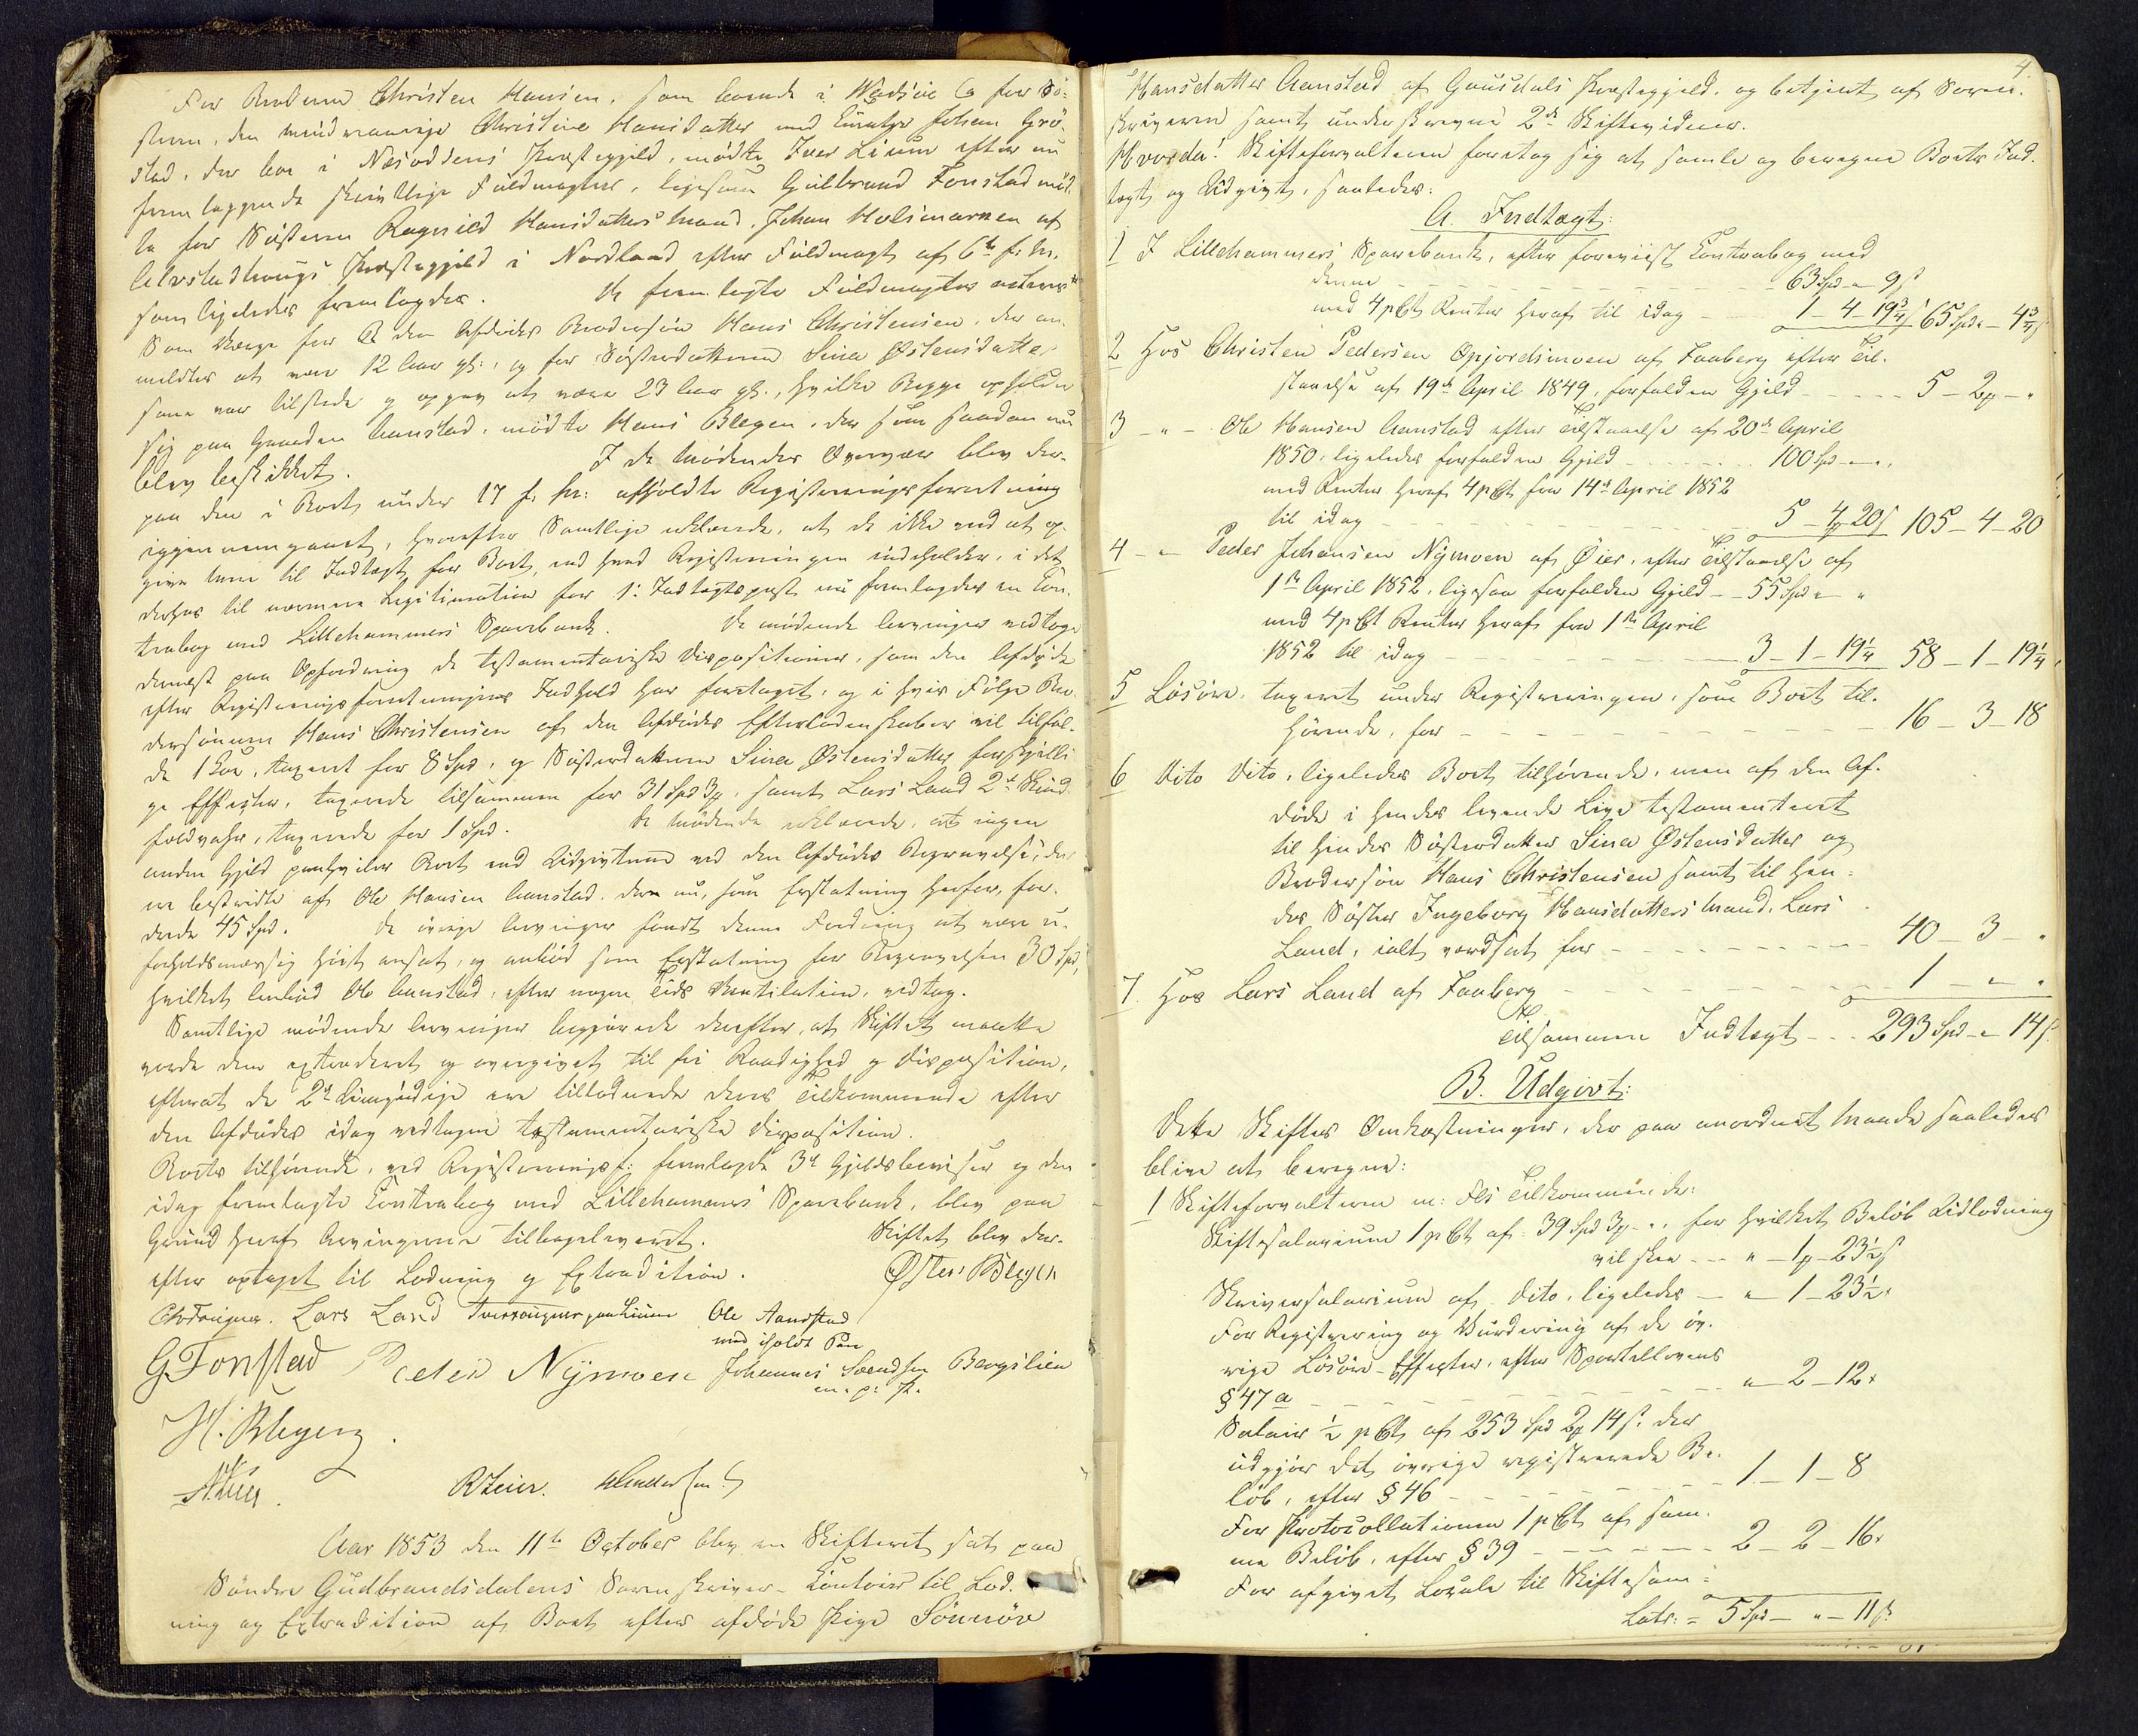 For Broderen Christen Hansen, som boende i Wardöie og for Sö-
steren, den mindreaarige Christine Hansdatter med Curator Johan Grö-
stad, der boe i Næsoddens Præstegjeld, mödte Iver Lium efter nu
fremlaggende skriftlige Fuldmagter, ligesom Gulbrand Fonstad möd-
te for Söstern Ragnild Hansdatters Mand, Johan Holsmarken af
Alvstadhougs Præstegjeld i Nordland efter Fuldmagt af 6te f. M.
som ligeledes fremlagdes. De fremlagte Fuldmagter
Som Værge for den Afdödes Brodersön Hans Christensen, der an-
meldtes at være 12 Aar gl:, og for Sösterdatteren Sina Østensdatter
som var tilstede og opgav at være 23 Aar gl., hvilke Begge opholder
sig paa Gaarden Aanstad, mödte Hans Blegen, der som saadan nu
blev beskikket. I de Mödendes Overvær blev der-
paa den i Boet under 17 f. M: afholdte Registreringsforretning
igjennemgaaet, hvorefter Samtlige erklærede, at de ikke ved at op-
give mere til Indtægt for Boet, end hvad Registreringen indeholder, i det
derhos til nærmere Legitimation for 1: Indtægtspost nu fremlagdes en Con-
trabog med Lillehammers Sparebank. De mödende Arvinger vedtoge
dernæst paa Opfordring de testamentariske Dispositioner, som den Afdöde
efter Registreringsforretningens Indhold har foretaget, og i hvis Fölge Bro-
dersönnen Hans Christensen af den Afdödes Efterladenskaber vil tilfal-
de 1 Koe, taxeret for 8 Spd, og Sösterdatteren Sina Østensdatter forskjelli-
ge Effecter, taxerede tilsammen for 31 Spd 3 ß, samt Lars Land 2de Skind-
foldesager, taxerede for 1 Spd. De Mödende erklærede, at ingen
anden Gjeld paahviler Boet end Udgivterne ved den Afdödes Begravelse, der
ere bestridte af Ole Hansen Aanstad, der nu, som Erstatning herfor, for-
drede 45 Spd. De övrige Arvinger fandt denne Fordring at være u-
forholdsmæssig höit ansat, og anböd som Erstatning for Begravelsen 30 Spd,
hvilket Anbud Ole Aanstad, efter nogen Tids Ventilation, vedtog.
Samtlige mödende Arvinger begjærede derefter, at Skiftet maatte
vorde dem extraderet og overgivet til fri Raadighed og Disposition,
efterat de 2de Umyndige ere tillodnede deres Tilkommende efter
den Afdödes idag vedtagne testamentariske Disposition.
Boets tilhörende, ved Registreringsf: fremlagde 3de Gjeldsbeviser og den
idag fremlagte Contrabog med Lillehammers Sparebank, blev paa
Grund heraf Arvingerne tilbageleveret. Skiftet blev der-
efter optaget til Lodning og Extradition. Østen Blegen
Lars Land Ole Aanstad
med iholdt Pen
G. Fonstad Peder Nijmoen Johannes Svendsen Bergslien
m. p. P.
H. Blegen
Aar 1853 den 11te October blev en Skifteret sat paa
Söndre Gudbrandsdalens Sorenskriver-Contoir til Lod-
ning og Extradition af Boet efter afdöde Pige Sönnöve
4.
Hansdatter Aanstad af Gausdals Præstegjeld, og betjent af Soren-
skriveren samt underskrevne 2de Skiftevidner.
Hvorda! Skifteforvalteren foretog sig at samle og beregne Boets Ind-
tægt og Udgivt, saaledes:
A. Indtægt:
1 I Lillehammers Sparebank, efter foreviist Contrabog med
denne - - - 63 Spd " 9 ß
med 4 pCt Renter heraf til idag - - 1 - 4 - 19 3/4 ß 65 Spd " - 4 3/4 ß
2 Hos Christen Pedersen Opjordsmoen af Faaberg efter Til-
staaelse af 19de April 1849, forfalden Gjeld - - - 5 - 2 ß - "
3 - " - Ole Hansen Aanstad efter Tilstaaelse af 20de April
1850, ligeledes forfalden Gjeld - - - 100 Spd - " "
med Renter heraf 4 pCt fra 14de April 1852
til idag - - - 5 - 4 ß 20 ß 105 - 4 - 20
4 - " Peder Johansen Nijmoen af Öier, efter Tilstaaelse af
1ste April 1852, ligesaa forfalden Gjeld - - 55 Spd " - "
med 4 pCt Renter heraf fra 1ste April
1852 til idag - - - 3 - 1 - 19 1/4 58 - 1 - 19 1/4
5 Lösöre, taxeret under Registreringen, som Boet til-
hörende, for - - - 16 - 3 - 18
6 Dito Dito, ligeledes Boet tilhörende, men af den Af-
döde i hendes levende Live testamenteret
til hendes Sösterdatter Sina Østensdatter og
Brodersön Hans Christensen samt til hen-
des Söster Ingeborg Hansdatters Mand, Lars
Land, ialt værdsat for - - - 40 - 3 - "
7. Hos Lars Land af Faaberg - - - 1 - " - "
Tilsammen Indtægt - - - 293 Spd - " 14 ß
B. Udgivt:
Dette Skiftes Omkostninger, der paa anordnet Maade saaledes
blive at beregne:
1 Skifteforvalteren m: Fls Tilkommende:
Skiftesalarium 1 pCt af 39 Spd 3 ß - ", for hvilket Belöb Udlodning
vil skee - - " - 1 ß - 23 1/2 ß
Skriversalarium af dito, ligeledes - " - 1 - 23 1/2 "
For Registrering og Vurdering af de öv-
rige Lösöre-Effecter, efter Sportellovens
§ 47 a - - - " - 2 - 12 "
Salair 1/2 pCt af 253 Spd 2 ß 14 ß, der
udgjör det övrige registrerede Be-
löb, efter § 46 - - - 1 - 1 - 8
For Protocollationen 1 pCt af sam-
me Belöb, efter § 39 - - - 2 - 2 - 16 "
For afgivet Locale til Skiftesam-
Lats: = 5 Spd - " - 11 ß